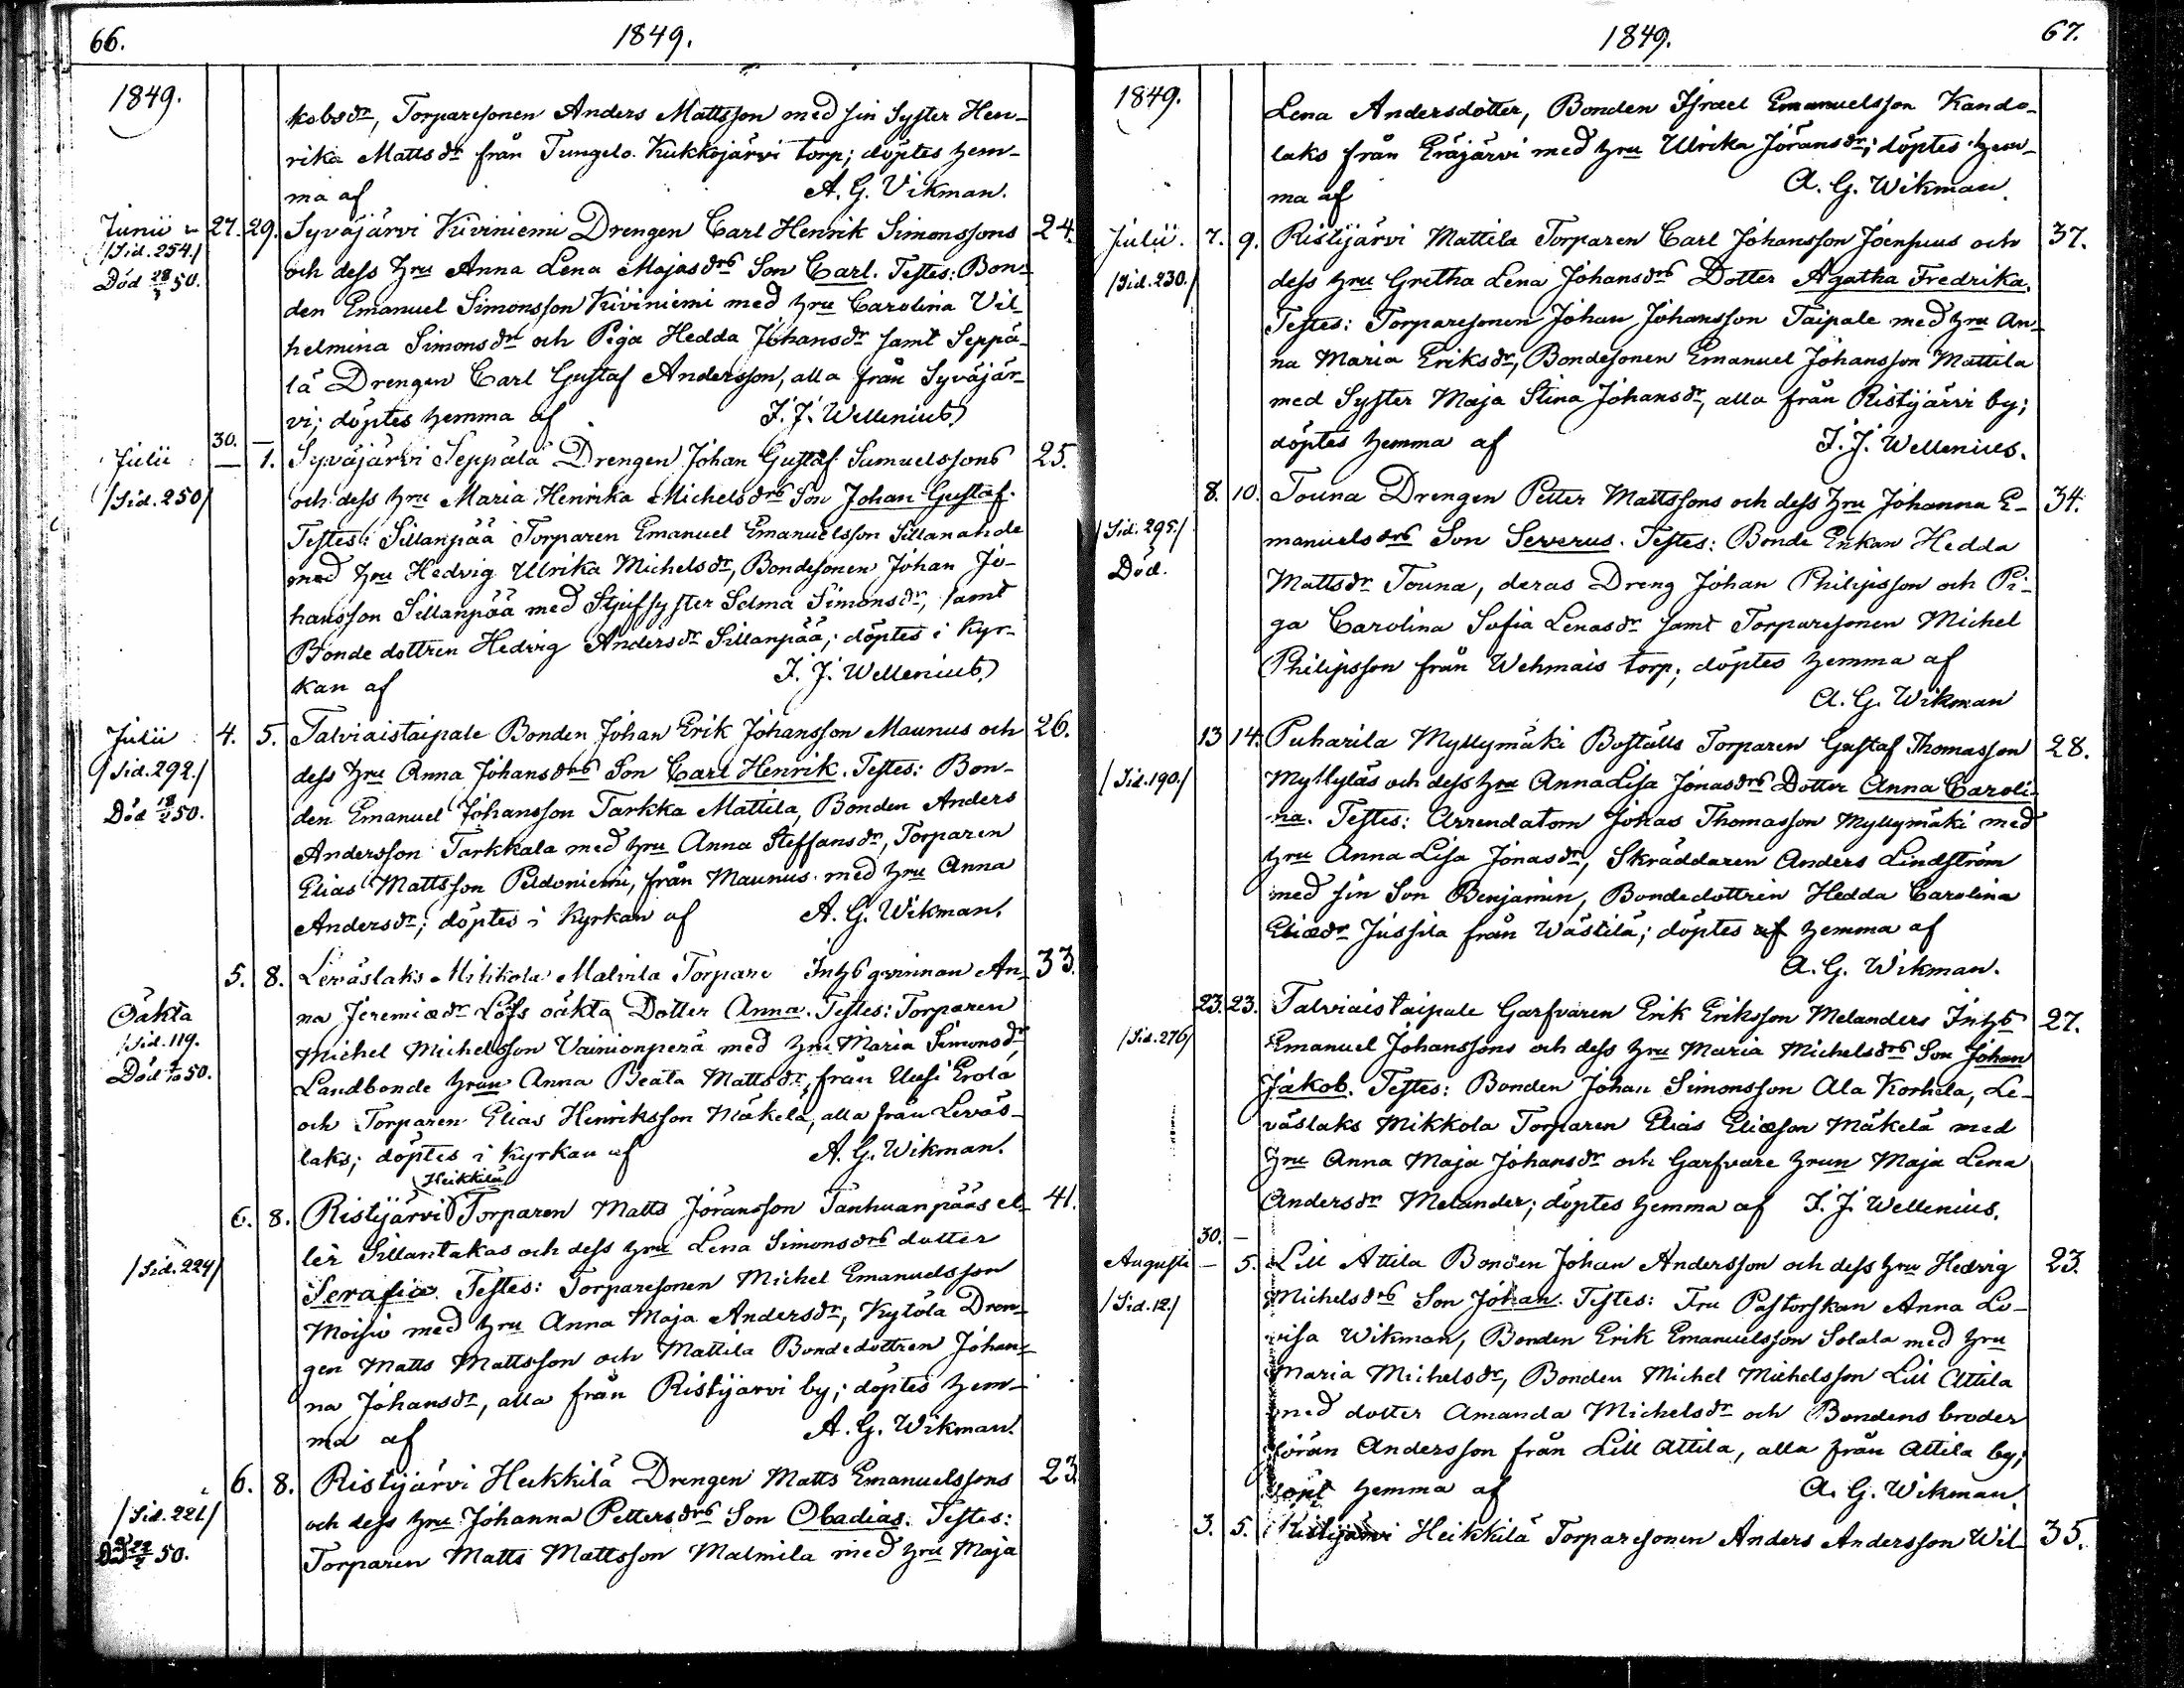 66.
1849.
1849.
kobsdr, Torparesonen Anders Mattsson med sin Syster Hen-
rika Mattsdr från Tungelo Kukkojärvi torp; döptes hem-
ma af A. G. Vikman.
Junii 27. 29. Syväjärvi Kiviniemi Drengen Carl Henrik Simonssons 24.
/Sid. 254./ och dess hru Anna Lena Majasdrs Son Carl. Testes: Bon-
Död 28/3 50. den Emanuel Simonsson Kiviniemi med hru Carolina Vil-
helmina Simonsdr och Piga Hedda Johansdr samt Seppä-
lä Drengen Carl Gustaf Andersson, alla från Syväjär-
vi; döptes hemma af J. J. Wellenius
30. —
Julii — 1. Syväjärvi Seppälä Drengen Johan Gustaf Samuelssons 25.
/Sid. 250/ och dess hru Maria Henrika Michelsdrs Son Johan Gustaf.
Testes: Sillanpää Torparen Emanuel Emanuelsson Sillanahde
med hru Hedvig Ulrika Michelsdr, Bondesonen Johan Jo-
hansson Sillanpää med Stjufsyster Selma Simonsdr, samt
Bonde dottren Hedvig Andersdr Sillanpää; döptes i Kyr-
kan af J. J. Wellenius.
Julii 4. 5. Talviaistaipale Bonden Johan Erik Johansson Maunus och 26.
/Sid. 292./ dess hru Anna Johansdrs Son Carl Henrik. Testes: Bon-
Död 18/2 50. den Emanuel Johansson Tarkka Mattila, Bonden Anders
Andersson Tarkkala med hru Anna Steffansdr, Torparen
Elias Mattsson Peldoniemi, från Maunus med hru Anna
Andersdr; döptes i Kyrkan af A. G. Wikman.
5. 8. Leväslaks Mikkola Malvila Torpare Inhs qvinnan An- 33.
Oäkta na Jeremiædr Löfs oäkta Dotter Anna. Testes: Torparen
/Sid. 119. Michel Michelsson Vainionperä med hru Maria Simonsdr,
Död 50. Landbonde hrun Anna Beata Mattsdr, från Uusi Erola
och Torparen Elias Henriksson Mäkelä, alla från Leväs-
laks; döptes i Kyrkan af A. G. Wikman.
Heikkilä
6. 8. Ristijärvi Torparen Matts Jöransson Tanhuanpääs el- 41.
/Sid. 224/ ler Sillantakas och dess hru Lena Simonsdrs dotter
Serafia. Testes: Torparesonen Michel Emanuelsson
Moisio med hru Anna Maja Andersdr, Kytölä Dren-
gen Matts Mattsson och Mattila Bondedottren Johan-
na Johansdr, alla från Ristijärvi by; döptes hem-
ma af A. G. Wikman.
6. 8. Ristijärvi Heikkilä Drengen Matts Emanuelssons 23.
/Sid. 221/ och dess hru Johanna Pettersdrs Son Obadias. Testes:
Död 50. Torparen Matts Mattsson Malmila med hru Maja
1849.
67.
1849.
Lena Andersdotter, Bonden Israel Emanuelsson Kando-
laks från Eräjärvi med hru Ulrika Jöransdr; döptes hem-
ma af A. G. Wikman.
Julii. 7. 9. Ristijärvi Mattila Torparen Carl Johansson Joensuus och 37.
/Sid. 230./ dess hru Gretha Lena Johansdrs Dotter Agatha Fredrika.
Testes: Torparesonen Johan Johansson Taipale med hru An-
na Maria Eriksdr, Bondesonen Emanuel Johansson Mattila
med Syster Maja Stina Johansdr, alla från Ristijärvi by;
döptes hemma af J. J. Wellenius.
8. 10. Touna Drengen Petter Mattssons och dess hru Johanna E- 34.
/Sid. 295./ manuelsdrs Son Severus. Testes: Bonde Enkan Hedda
Död. Mattsdr Touna, deras Dreng Johan Philipsson och Pi-
ga Carolina Sofia Lenasdr samt Torparesonen Michel
Philipsson från Wehmais torp; döptes hemma af
A. G. Wikman
13 14. Puharila Myllymäki Boställs Torparen Gustaf Thomasson 28.
/Sid. 190./ Myllyläs och dess hru Anna Lisa Jonasdrs Dotter Anna Caroli-
na. Testes: Arrendatorn Johas Thomasson Myllymäki med
hru Anna Lisa Jonasdr, Skräddaren Anders Lindström
med sin Son Benjamin, Bondedottren Hedda Carolina
Eliædr Jussila från Wästilä; döptes af hemma af
A. G. Wikman.
23. 23. Talviaistaipale Garfvaren Erik Eriksson Melanders Inhs 27.
/Sid. 276/ Emanuel Johanssons och dess hru Maria Michelsdrs Son Johan
Jakob. Testes: Bonden Johan Simonsson Ala Korhela, Le-
väslaks Mikkola Torparen Elias Eliæson Mäkelä med
hru Anna Maja Johansdr och Garfvare hrun Maja Lena
Andersdr Melander; döptes hemma af J. J. Wellenius.
30. —
Augusti — 5. Lill Attila Bonden Johan Andersson och dess hru Hedvig 23.
/Sid. 12./ Michelsdrs Son Johan. Testes: Fru Pastorskan Anna Lo-
visa Wikman, Bonden Erik Emanuelsson Solala med hru
Maria Michelsdr, Bonden Michel Michelsson Lill Attila
med dotter Amanda Michelsdr och Bondens broder
Jöran Andersson från Lill Attila, alla från Attila by;
döpt hemma af A. G. Wikman.
3. 5. Ristijärvi Heikkilä Torparesonen Anders Andersson Wil- 35.